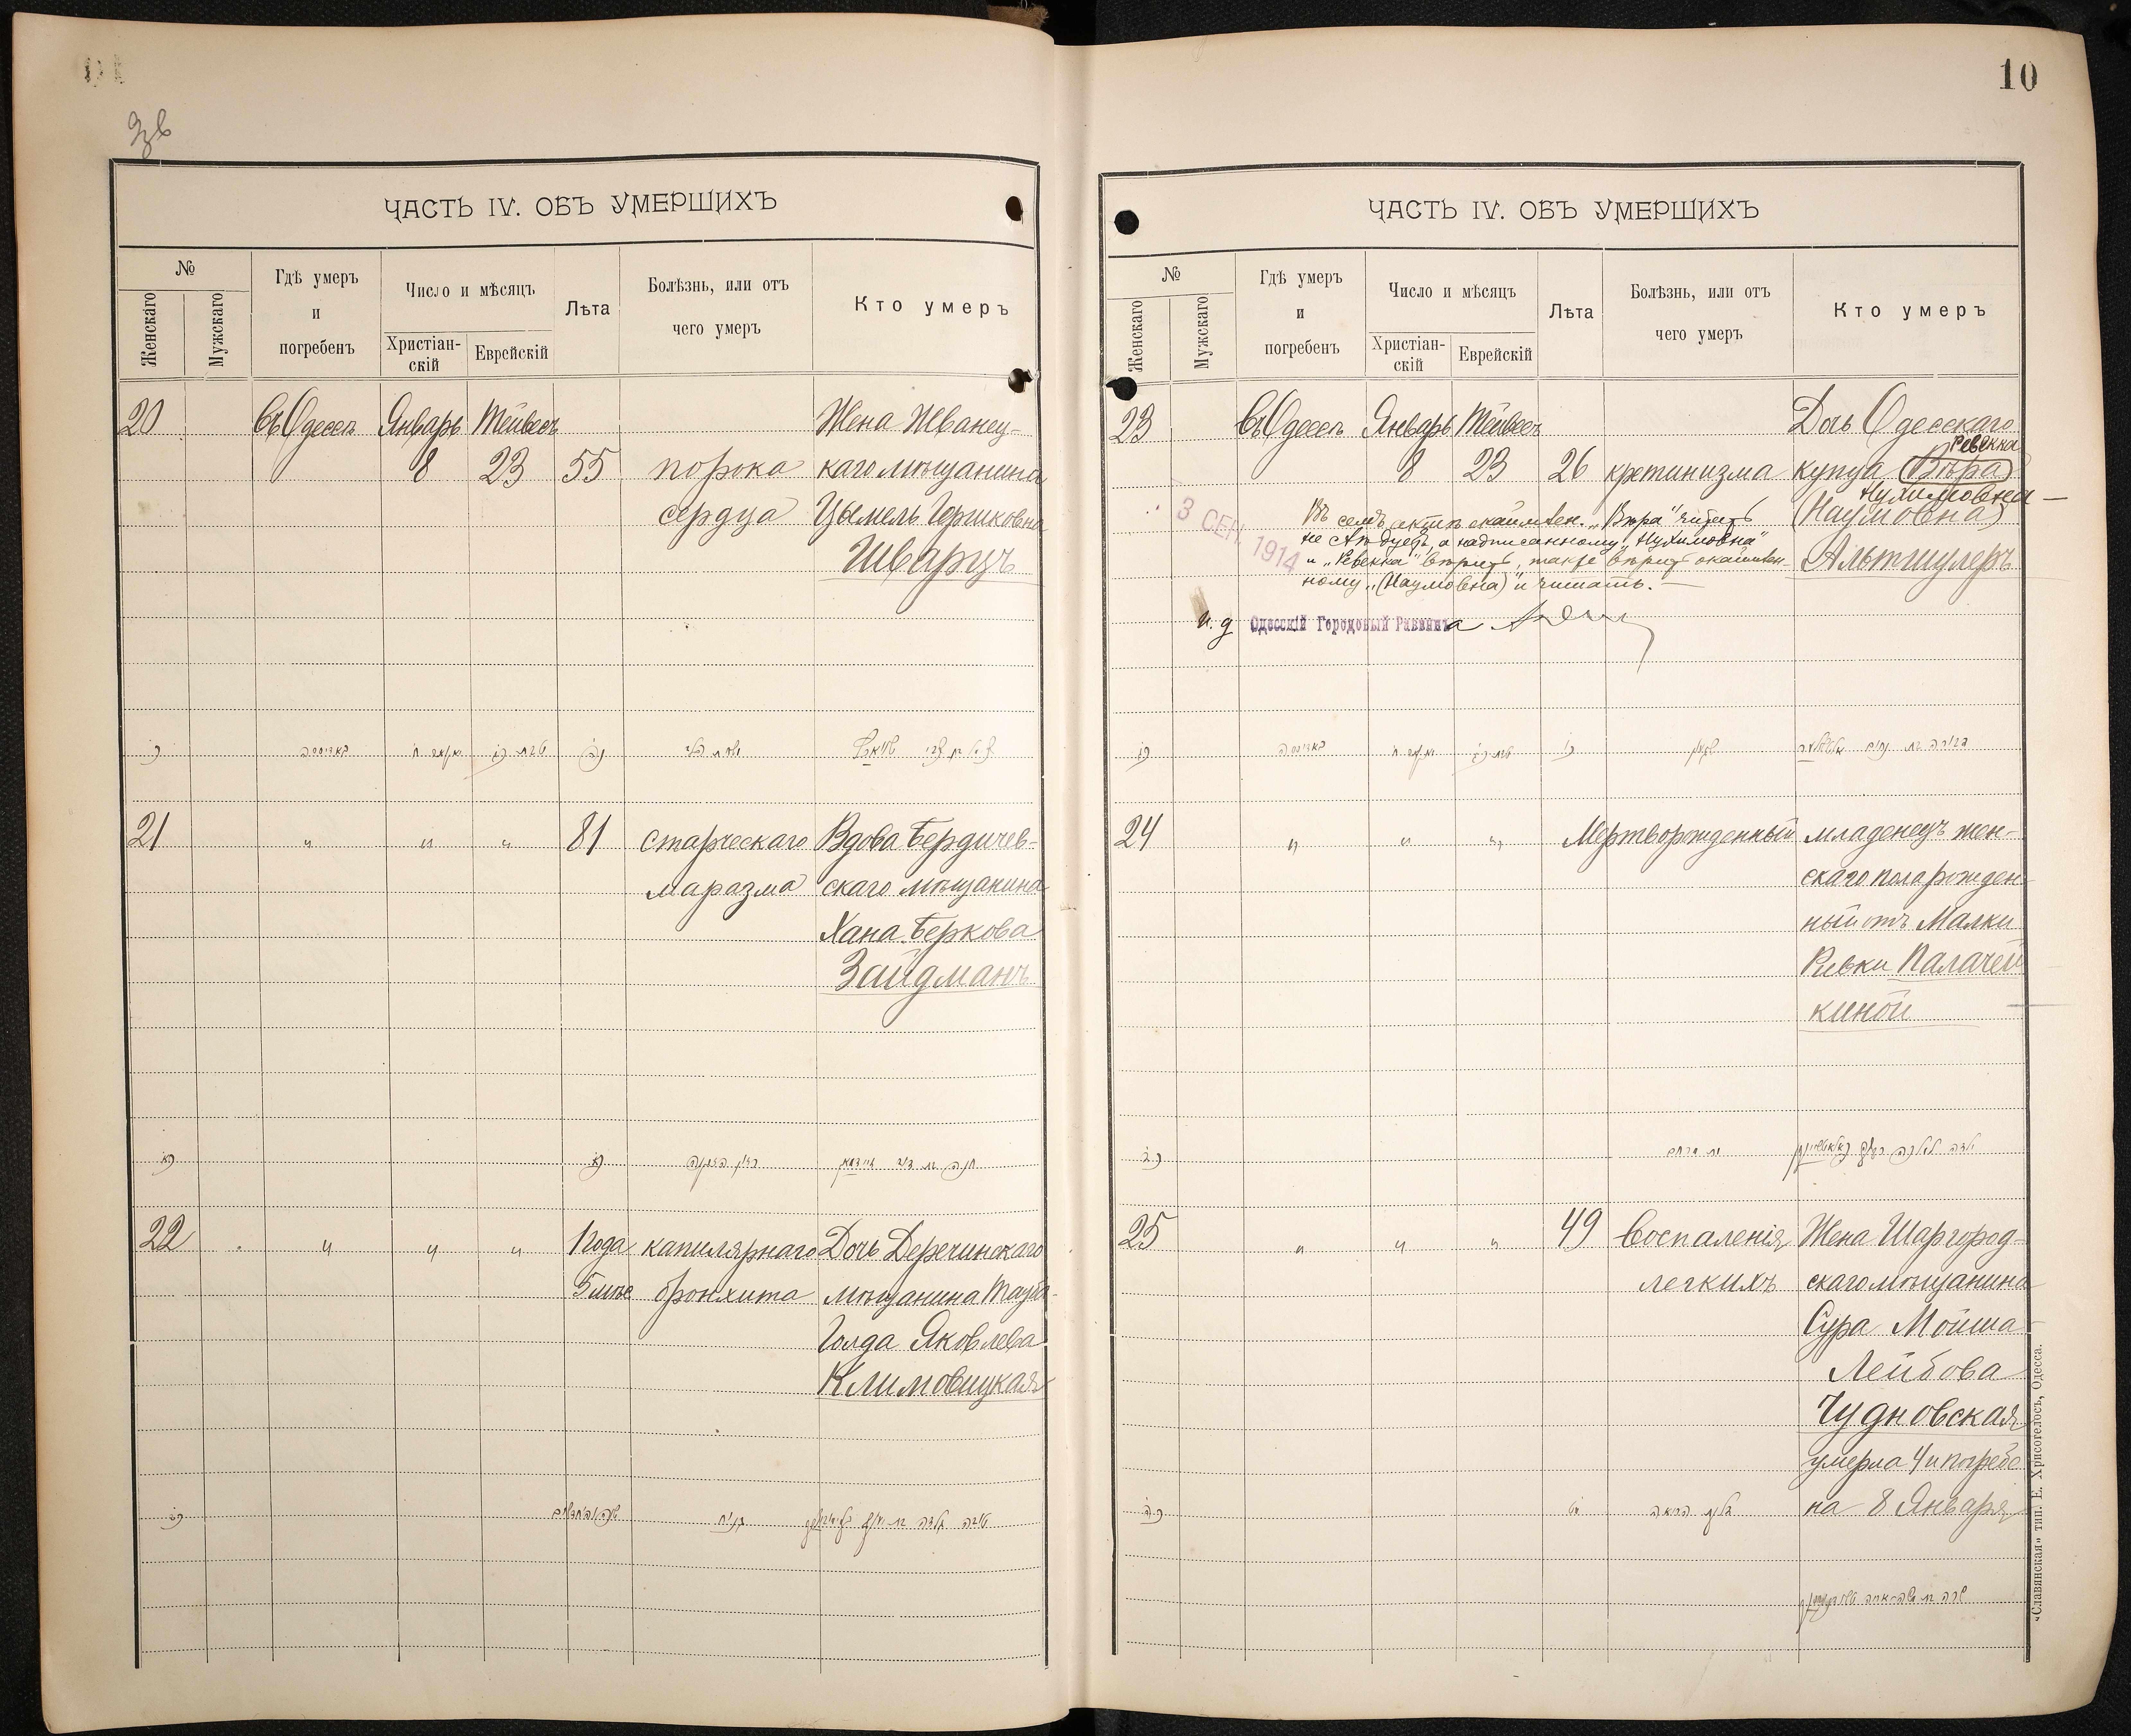 10
ЧАСТЬ IV. ОБЪ УМЕРШИХЪ
№
Женскаго
Мужскаго
Гдѣ умеръ
и
погребенъ
Число и мѣсяцъ
Христіан-
скій
Еврейскій
Лѣта
Болѣзнь, или отъ
чего умеръ
Кто умеръ
20 въ Одессѣ Январь Тейвесъ Жена Жванец-
8 23 55 порока каго мѣщанина
сердца Цымель Гершковна
Шварцъ
21 " " " 81 старческаго Вдова Бердичев-
маразма скаго мѣщанина
Хана Беркова
Зайдманъ
22 " " " 1 года капилярнаго Дочь Деречинскаго
5 мѣс бронхита мѣщанина Тауба-
Голда Яковлева
Климовицкая
ЧАСТЬ IV. ОБЪ УМЕРШИХЪ
№
Женскаго
Мужскаго
Гдѣ умеръ
и
погребенъ
Число и мѣсяцъ
Христіан-
скій
Еврейскій
Лѣта
Болѣзнь, или отъ
чего умеръ
Кто умеръ
23 въ Одессѣ Январь Тейвесъ Дочь Одесскаго
Ревекка
8 23 26 кретинизма купца (Вѣра)
Нухимовна
(Наумовна)
Альтшулеръ
3 СЕН. 1914
Въ семъ актѣ окаймлен. „Вѣра" читать
не слѣдуетъ, а надписанному „Нухимовна"
и „Ревекка" вѣрить, также вѣрить окаймлен-
ному „(Наумовна)" и читать.
И. д Одесскій Городовый Раввинъ а
24 " " " Мертворожденный младенецъ жен-
скаго пола рожден-
ный отъ Малки
Ривки Палачей
киной
25 " " " 49 Воспаленія Жена Шаргород-
легкихъ скаго мѣщанина
Сура Мойша-
Лейбова
Чудновская
умерла 4 и погребе
на 8 Января
«Славянская» тип. Е. Хрисогелосъ, Одесса.